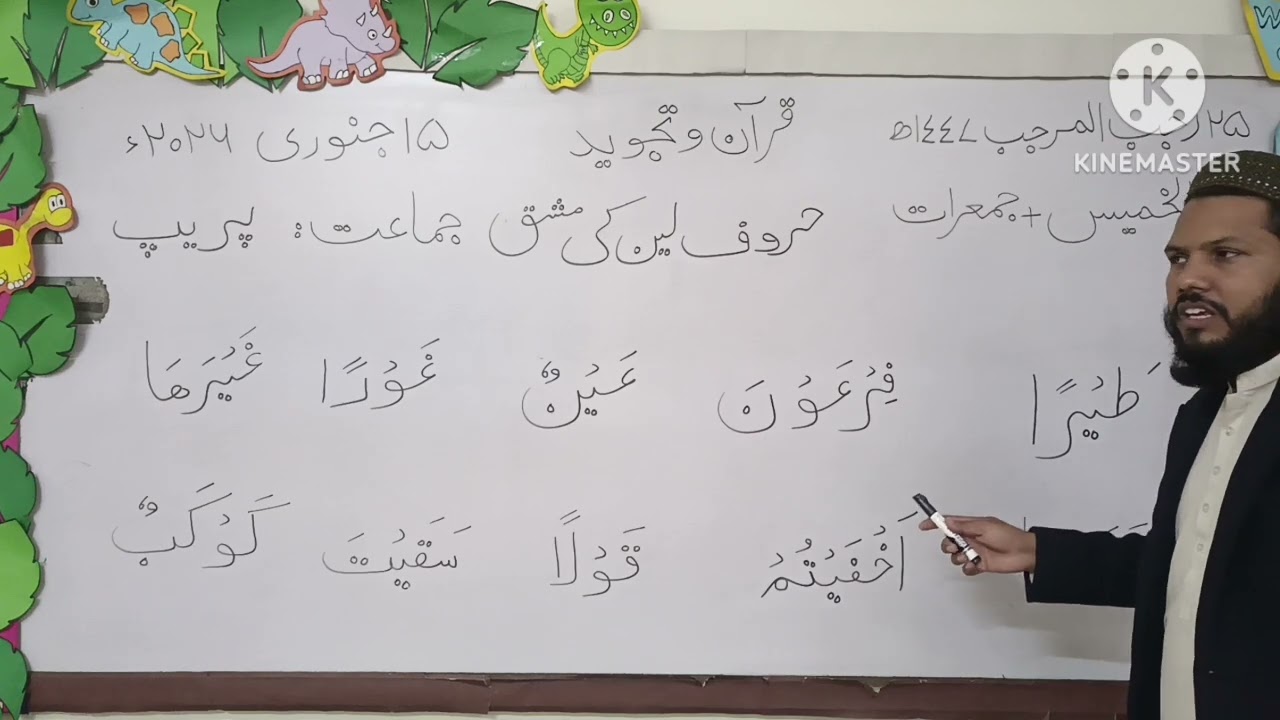 ۲۵ رجب المرجب ۱٤٤۷ھ قرآن و تجوید ۱۵ جنوری ۲۰۲۶ء
الخمیس + جمعرات حروف لین کی مشق جماعت: پریپ
طَيْرًا فِرْعَوْنَ عَيْنٌ غَوْرًا غَيْرَهَا
اَخْفَيْتُمْ قَوْلًا سَقَيْتَ كَوْكَبٌ
KINEMASTER